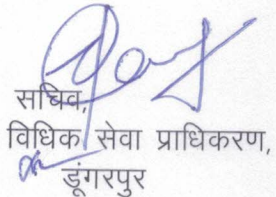 सचिव,
विधिक सेवा प्राधिकरण,
डूंगरपुर